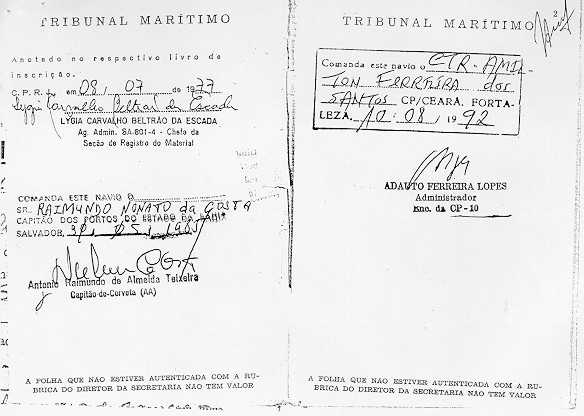 TRIBUNAL MARÍTIMO
Anotado no respectivo livro de
inscrição.
C. P. R. J. em 08, 07 de 1977
Lygia Carvalho Beltrão da Escada
LYGIA CARVALHO BELTRÃO DA ESCADA
Ag. Admin. SA-801-4 - Chefe da
Seção de Registro do Material
COMANDA ESTE NAVIO O
SR. RAIMUNDO NONATO da COSTA
CAPITÃO DOS PORTOS DO ESTADO DA BAHIA
SALVADOR,
Antonio Raimundo de Almeida Teixeira
Capitão-de-Corveta (AA)
A FOLHA QUE NÃO ESTIVER AUTENTICADA COM A RU-
BRICA DO DIRETOR DA SECRETARIA NÃO TEM VALOR
2
TRIBUNAL MARÍTIMO
Comanda este navio o CTR-AMIL
TON FERREIRA dos
SANTOS CP/CEARÁ. FORTA-
LEZA. 10.08, 1992
ADAUTO FERREIRA LOPES
Administrador
Enc. da CP-10
A FOLHA QUE NÃO ESTIVER AUTENTICADA COM A RU-
BRICA DO DIRETOR DA SECRETARIA NÃO TEM VALOR